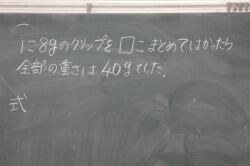 に8gのクリップを□こまとめてはかったら
全部の重さは40gでした。
式